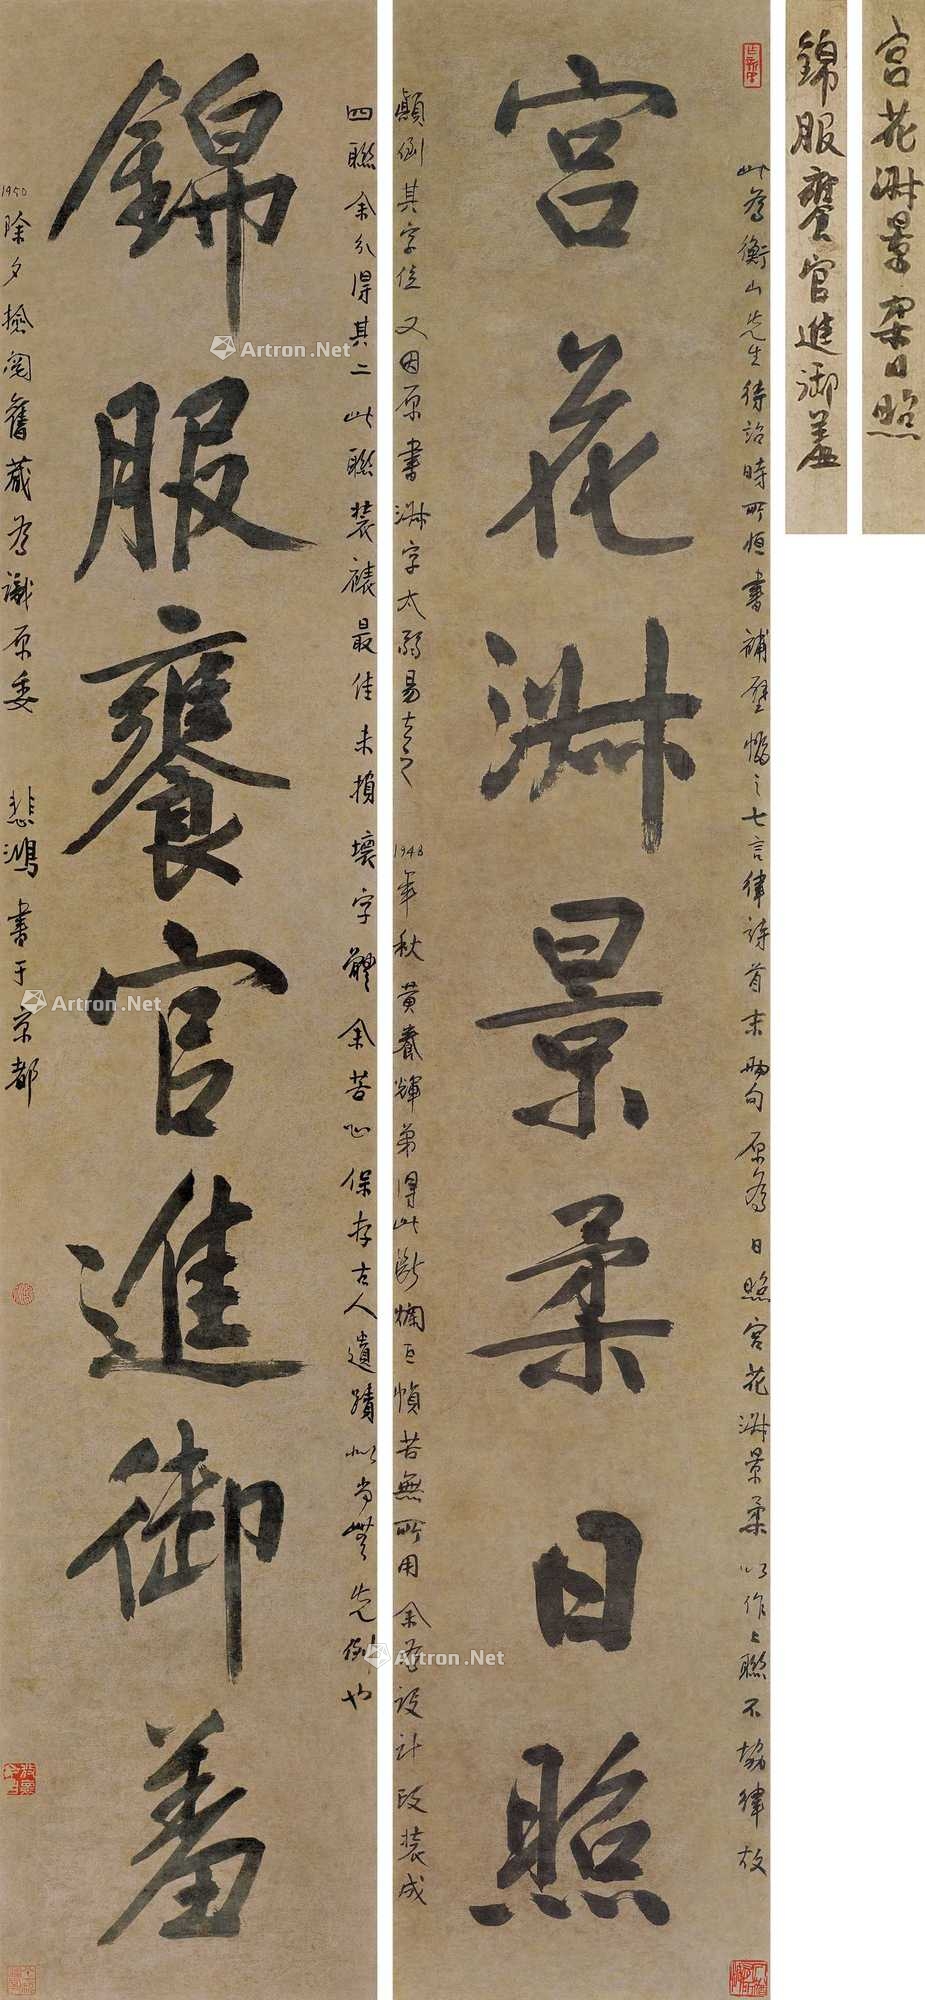 宮花淋景柔日照
錦服饔官進御羞
此為衡山先生待詔時所恒書補壁幅之七言律詩首末兩句原為日照宮花淋景柔以作上聯不協律故
顛倒其字位又因原書淋字太弱易去之 1948年秋黃養輝弟得此斷爛巨幀苦無所用余為設計改裝成
四聯余分得其二此聯裝裱最佳未損壞字體余苦心保存古人遺蹟似尚無先例也
1950除夕撿閱舊藏為識原委 悲鴻書于京都
宮花淋景柔日照
錦服饔官進御羞
Artron.Net
Artron.Net
Artron.Net